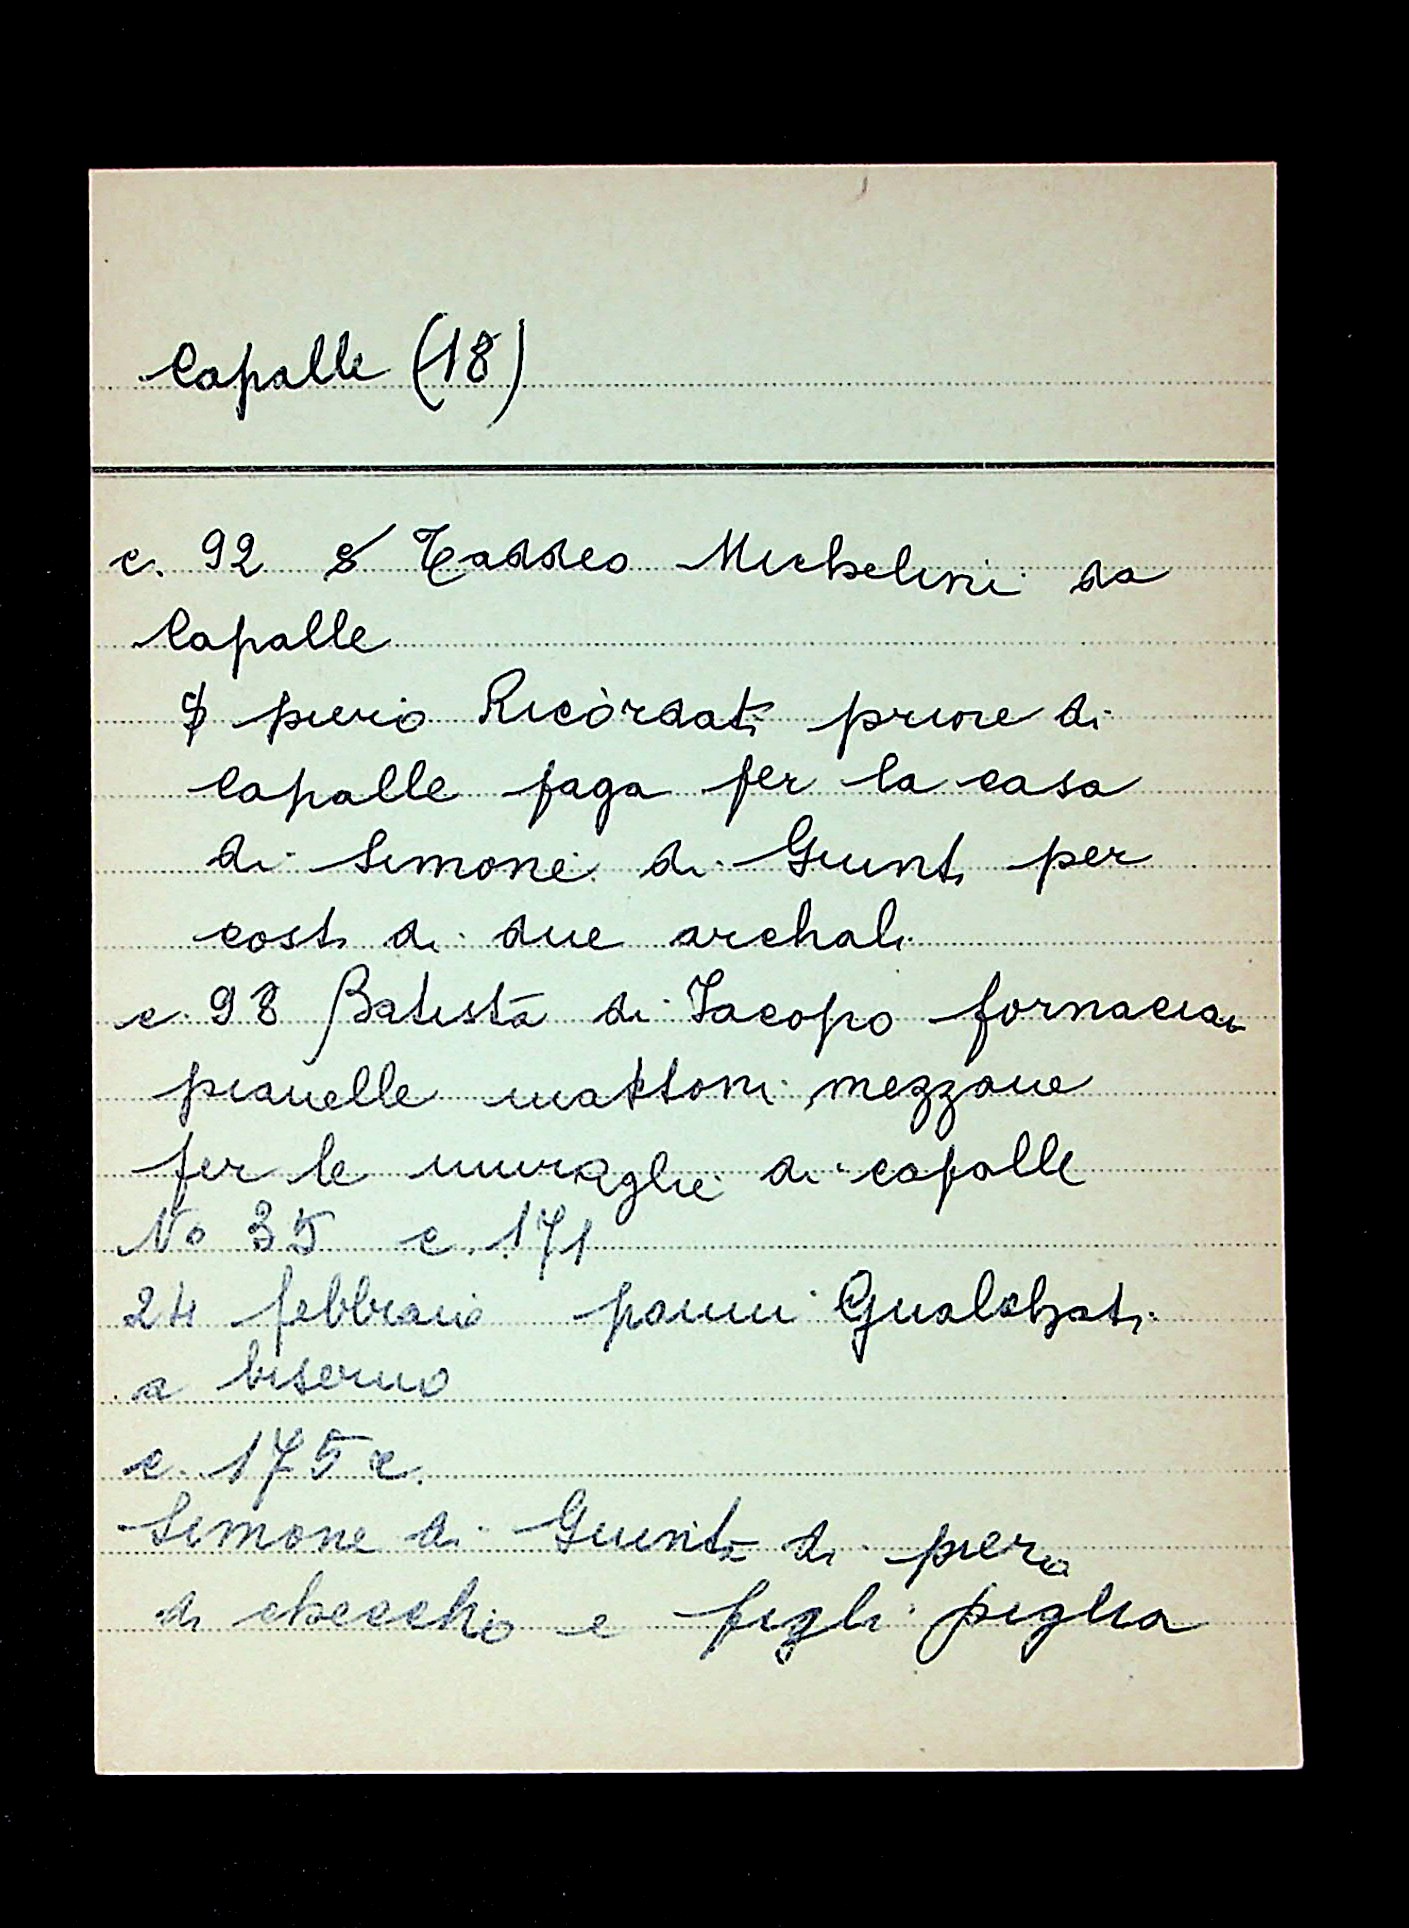 Capalle (18)
c. 92 s Taddeo Michelini da
Capalle
s piero Ricordati priore di
Capalle paga per la casa
di Simone di Giunti per
costi di due archali
c. 98 Batista di Iacopo fornaciaio
pianelle mattoni mezzane
per le muraglie di capalle
No 35 c. 171
24 febbraio panni Gualchati
a biserno
c. 175 c.
Simone di Giunta di piero
di checcho e figli piglia